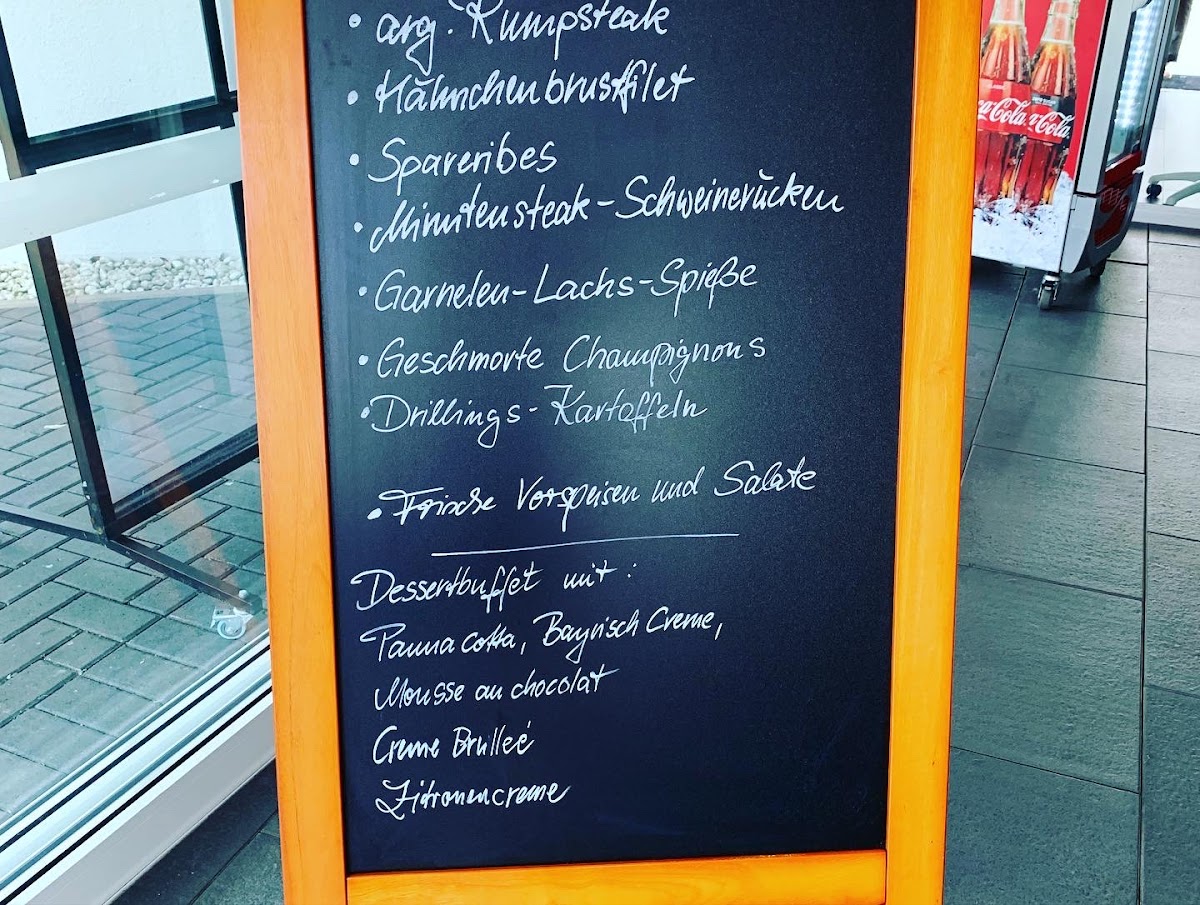 • arg. Rumpsteak
• Hähnchenbrustfilet
• Spareribes
• Minutensteak-Schweinerücken
• Garnelen-Lachs-Spieße
• Geschmorte Champignons
• Drillings-Kartoffeln
• Frische Vorspeisen und Salate
Dessertbuffet mit:
Panna cotta, Bayrisch Creme,
Mousse au chocolat
Creme Brulleé
Zitronencreme
Coca-Cola
Coca-Cola